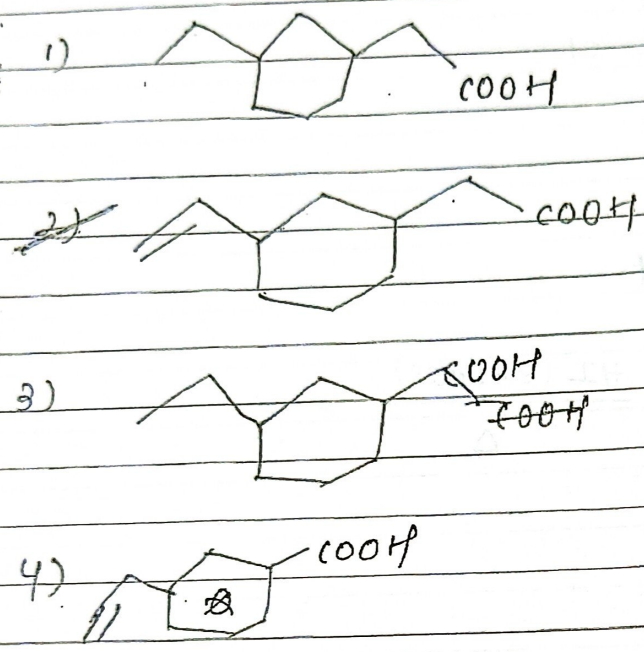 1)
COOH
2)
COOH
3)
COOH
COOH
4)
COOH